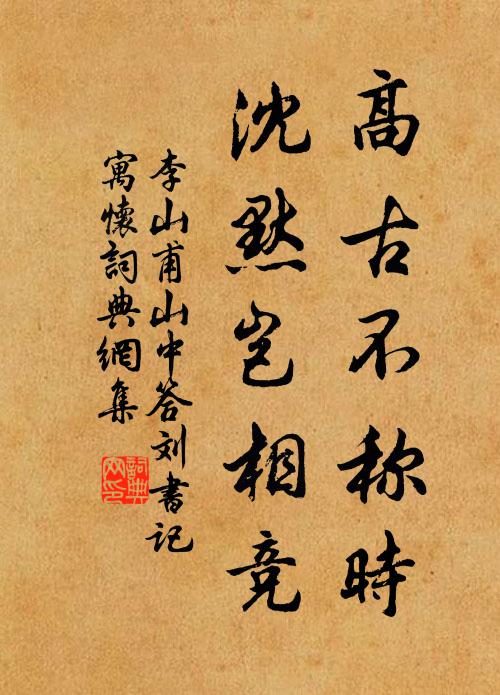 高古不称時
沈默岂相竞
李山甫山中答刘書記
寓懷詞典網集
詞典
网印